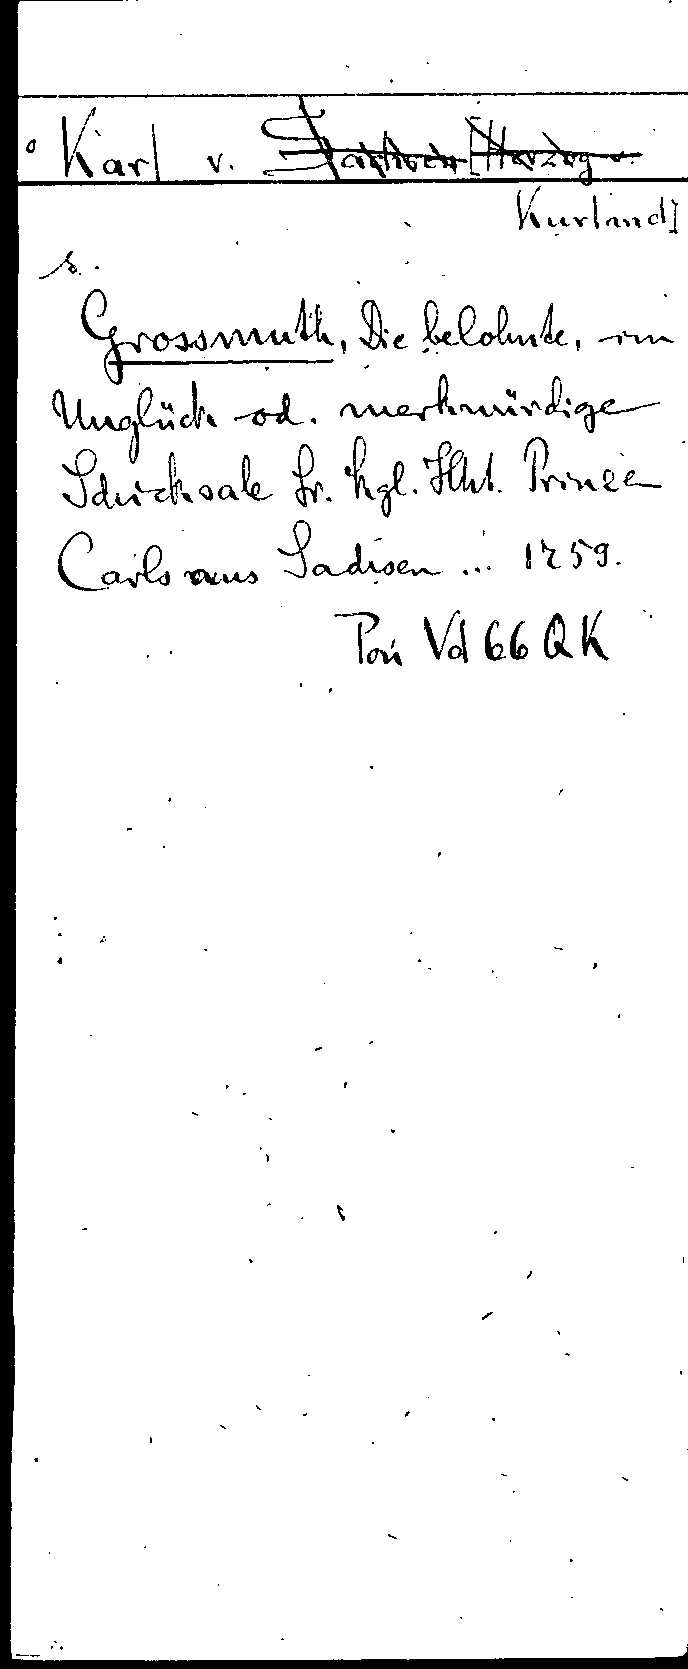 Karl v. Sachsen [Herzog v.
Kurland]
s.
Grossmuth, Die belohnte, im
Unglück od. merkwürdige
Schicksale Sr. kgl. Hht. Prinze
Carls aus Sachsen ... 1759.
Pon Vd 66 QK